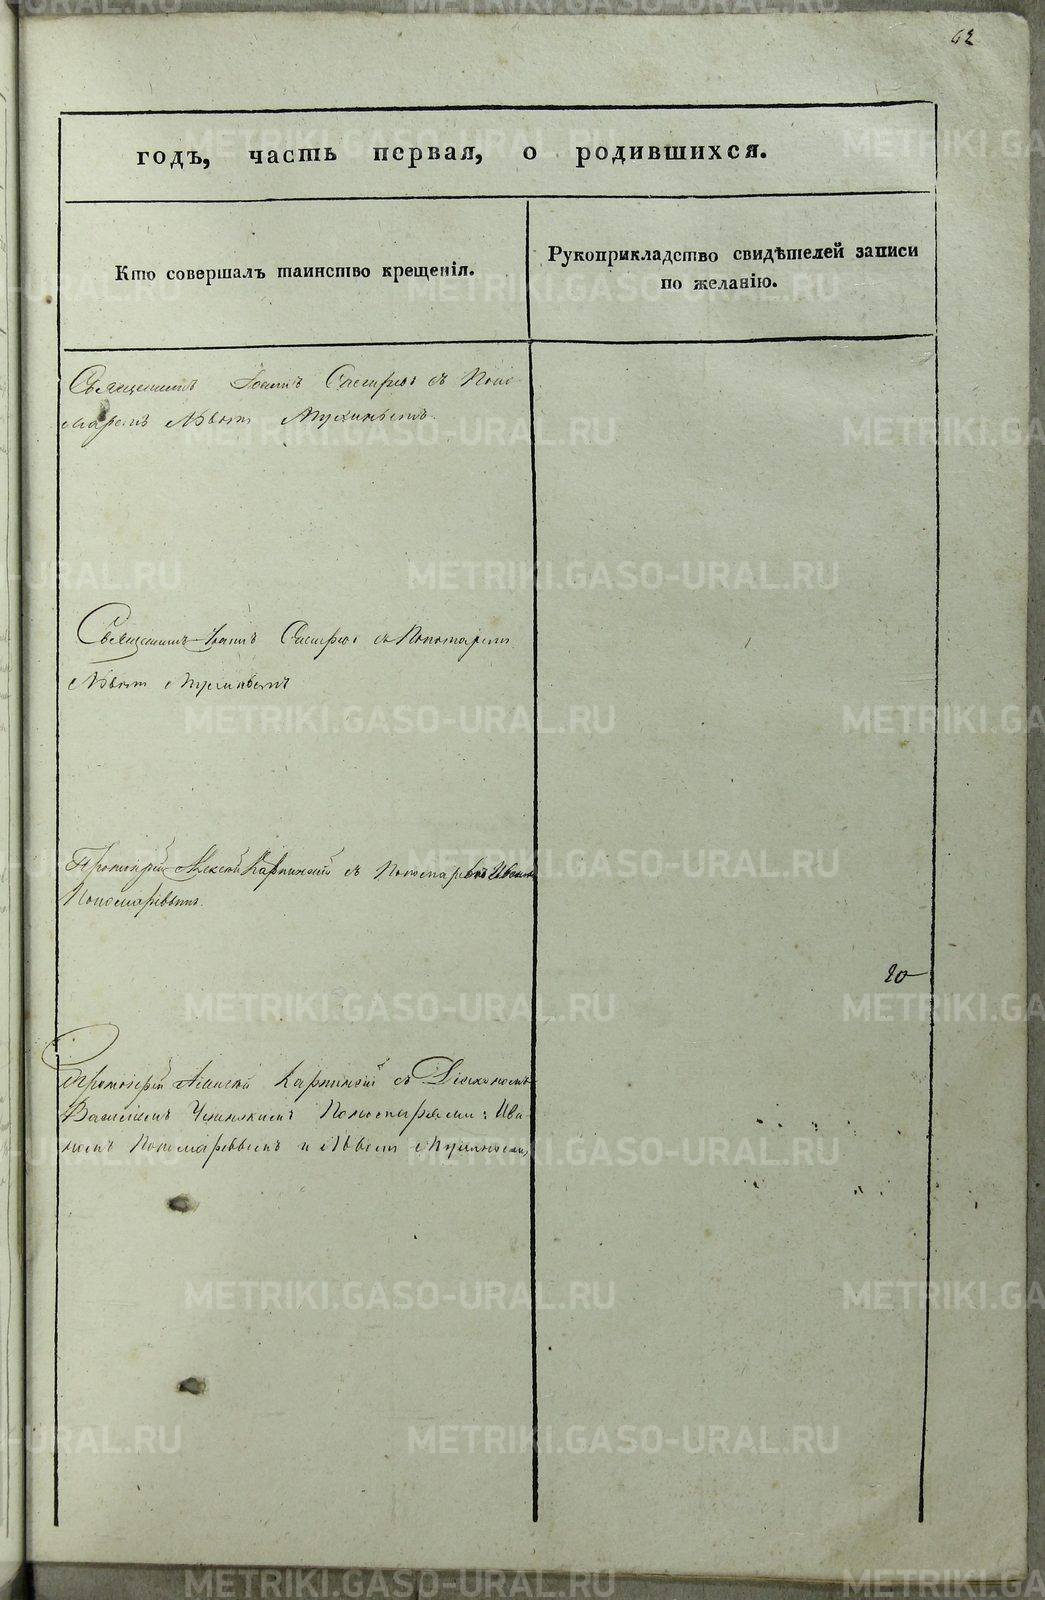 62
годъ, часть первая, о родившихся.
Кто совершалъ таинство крещенія.
Рукоприкладство свидѣтелей записи
по желанію.
Священникъ Іоаннъ с Поно-
маремъ Львомъ
Священникъ Іоаннъ с Пономаремъ
Львомъ
Протоіерей Алексѣй Карпинскій с Пономаремъ Иваномъ
Пономаревымъ.
20
Протоіерей Алексѣй Карпинскій с Діакономъ
Василіемъ Пономарями: Ива-
номъ Пономаревымъ и Львомъ
METRIKI.GASO-URAL.RU